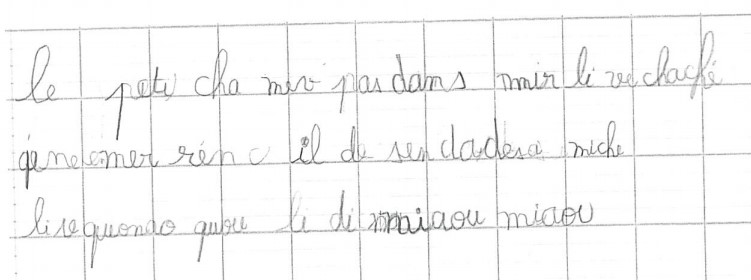 le peti cha mer pas dams mir li ve chaché
gene emer rén c il de sen dadesa miche
li se quonao quou li di miaou miaou